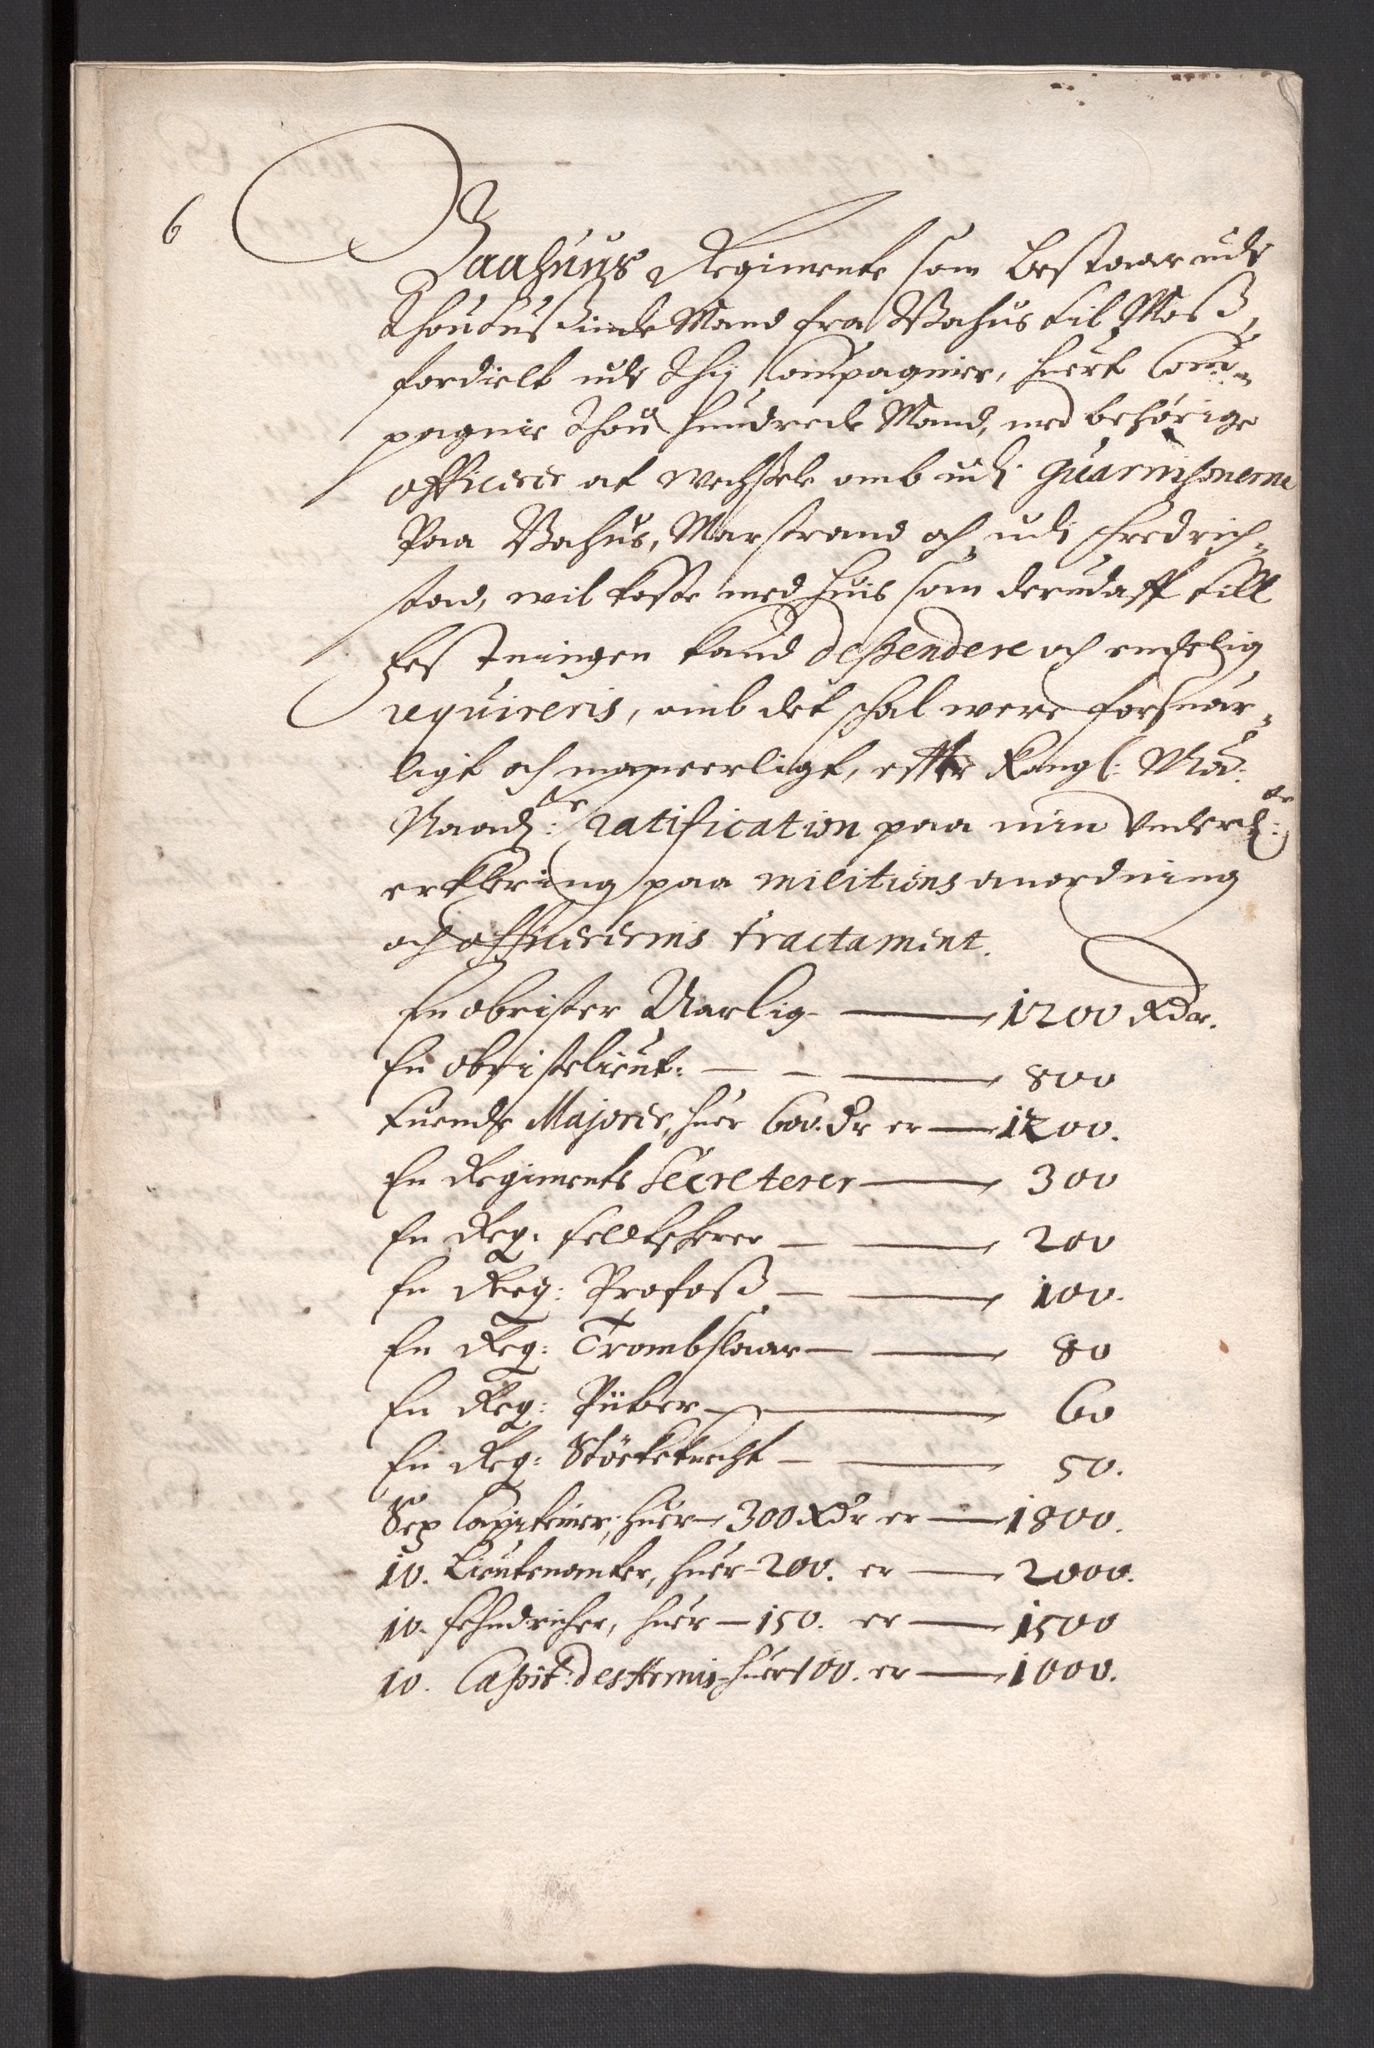 6
Baahuus Regimente som bestaar udi
Thoutusßinde Mand fra Bahus til Moß,
fordielt udi Thij Compagnier, huert Com-
pagnie Thou hundrede Mand, med behörige
officerer at wechßele omb udi guarnisonerne
Paa Bahus, Marstrand och udi Fredrich-
stad, wil koste med huis som derudaff till
Festningen kand dependere och endelig
requireris, omb det schal were forsuar-
ligt och manerligt, effter Kongl: May:
Naad: ratification paa min Underd:
erklering paa militiens anordning
och officerernis tractament.
En obrister Aarlig — 1200 Rdr.
En obristelieut: — 800
Tuende Majorer, huer 600. dr er — 1200.
En Regiments Secreterer — 300
En Reg: feldtscherer — 200
En Reg: Profoß — 100.
En Reg: Trombslaar — 80
En Reg: Piiber — 60
En Reg: Stöckeknecht — 50.
Sex Capiteiner, huer — 300 Rdr er — 1800.
10. Lieutenanter, huer — 200. er — 2000.
10. fehndricher, huer — 150. er — 1500
10. Capit: desArmis huer 100. er — 1000.